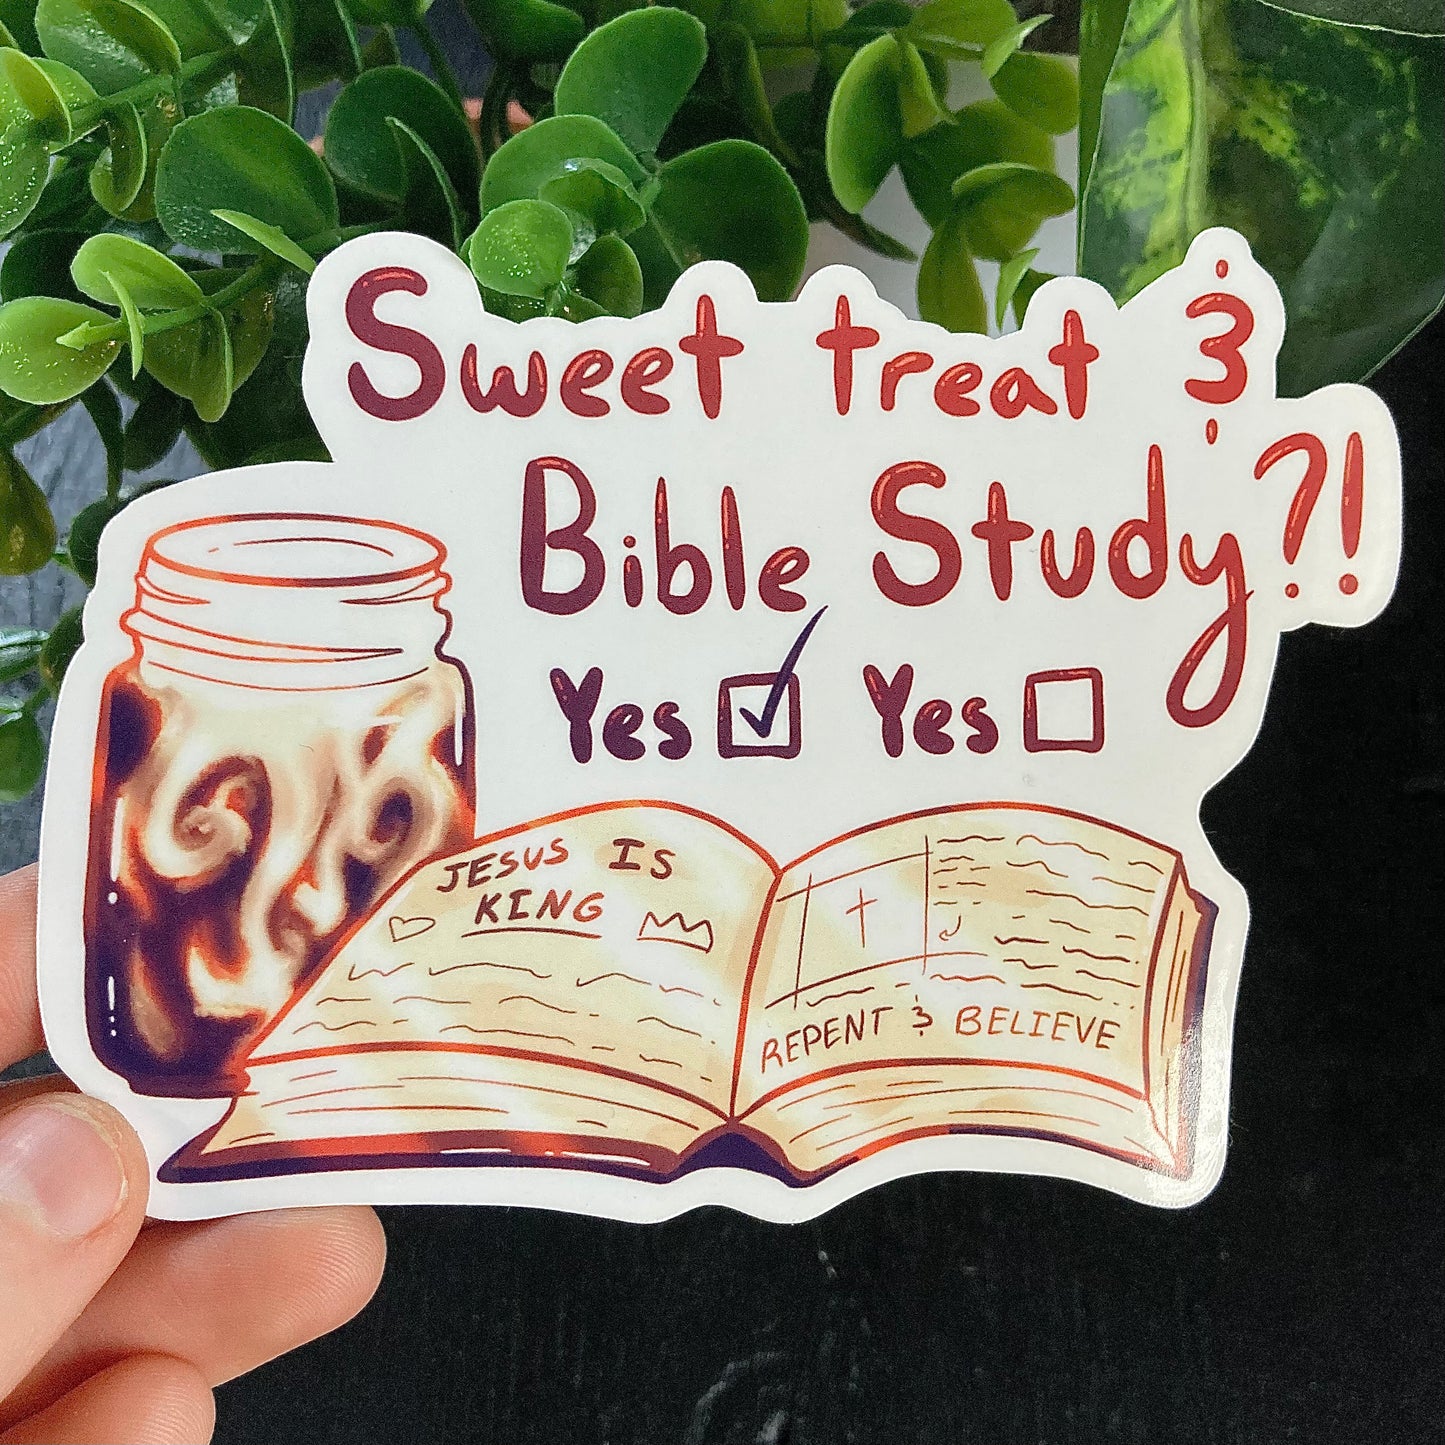 Sweet treat &
Bible Study?!
Yes Yes
JESUS IS
KING
REPENT & BELIEVE